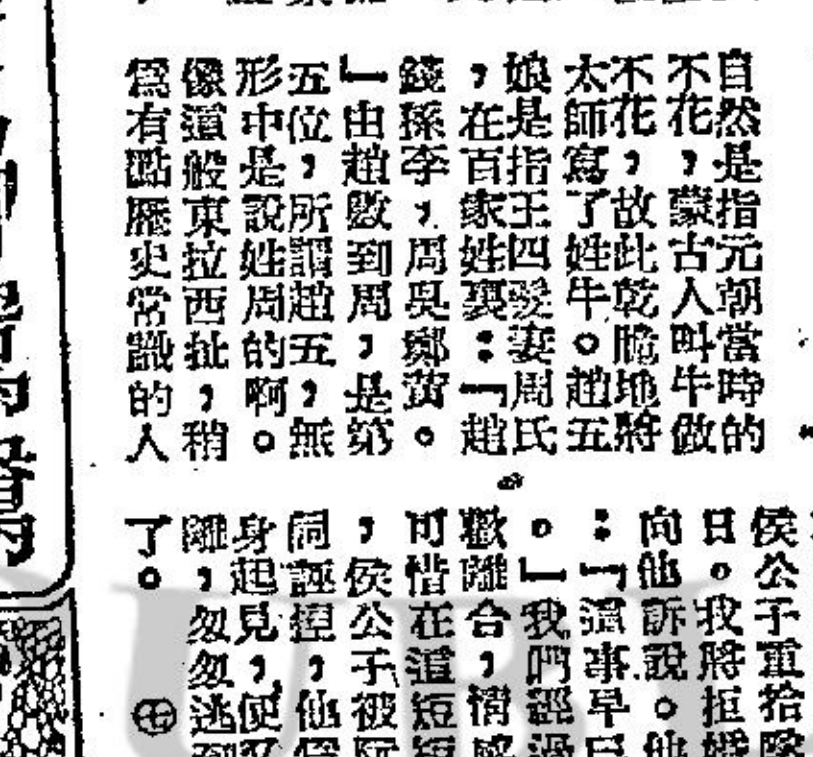 自然是指元朝當時的
不花,蒙古人叫牛做
不花,故此乾脆地將
太師寫了姓牛。趙五
娘是指王四髮妻周氏
,在百家姓裏:「趙
錢孫李,周吳鄭黃。
」由趙數到周,是第
五位,所謂趙五,無
形中是說姓周的啊。
像這般東拉西扯,稍
為有點歷史常識的人
侯公子重拾
日。我將拒婚
向他訴說。他
:「這事早已
。」我們經過
歡離合,情感
可惜在這短短
,侯公子被阮
詞誣控,他
身起見,便
離,忽忽逃到
了。㊆